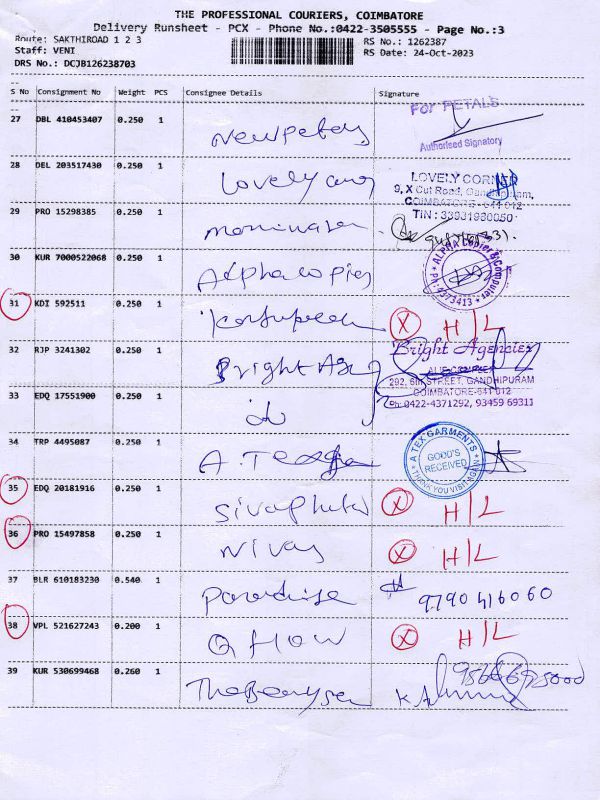 THE PROFESSIONAL COURIERS, COIMBATORE
Delivery Runsheet - PCX - Phone No.:0422-3505555 - Page No.:3
Route: SAKTHIROAD 1 2 3
RS No.: 1262387
Staff: VENI
RS Date: 24-Oct-2023
DRS No.: DCJB126238703
S No Consignment No Weight PCS Consignee Details Signature
27 DBL 410453407 0.250 1 Newpetals
For PETALS
Authorised Signatory
28 DEL 203517430 0.250 1 Lovely
LOVELY CORNER
9, X Cut Road, Gandhipuram,
COIMBATORE - 641 012
TIN : 33931980050
29 PRO 15298385 0.250 1
30 KUR 7000522068 0.250 1 Alphacopies
ALPHA Copier & Computer
Ph: 4373413
31 KDI 592511 0.250 1 X H/L
32 RJP 3241302 0.250 1 Bright Age
Bright Agencies
292, 6th STREET, GANDHIPURAM
COIMBATORE-641 012
Ph: 0422-4371292, 93459 69311
33 EDQ 17551900 0.250 1
34 TRP 4495087 0.250 1 A. Tex
A TEX GARMENTS
GOOD'S
RECEIVED
THANK YOU VISIT AGAIN
35 EDQ 20181916 0.250 1 X H/L
36 PRO 15497858 0.250 1 Nivas X H/L
37 BLR 610183230 0.540 1 Paradise 9790 416060
38 VPL 521627243 0.200 1 Q flow X H/L
39 KUR 530699468 0.260 1